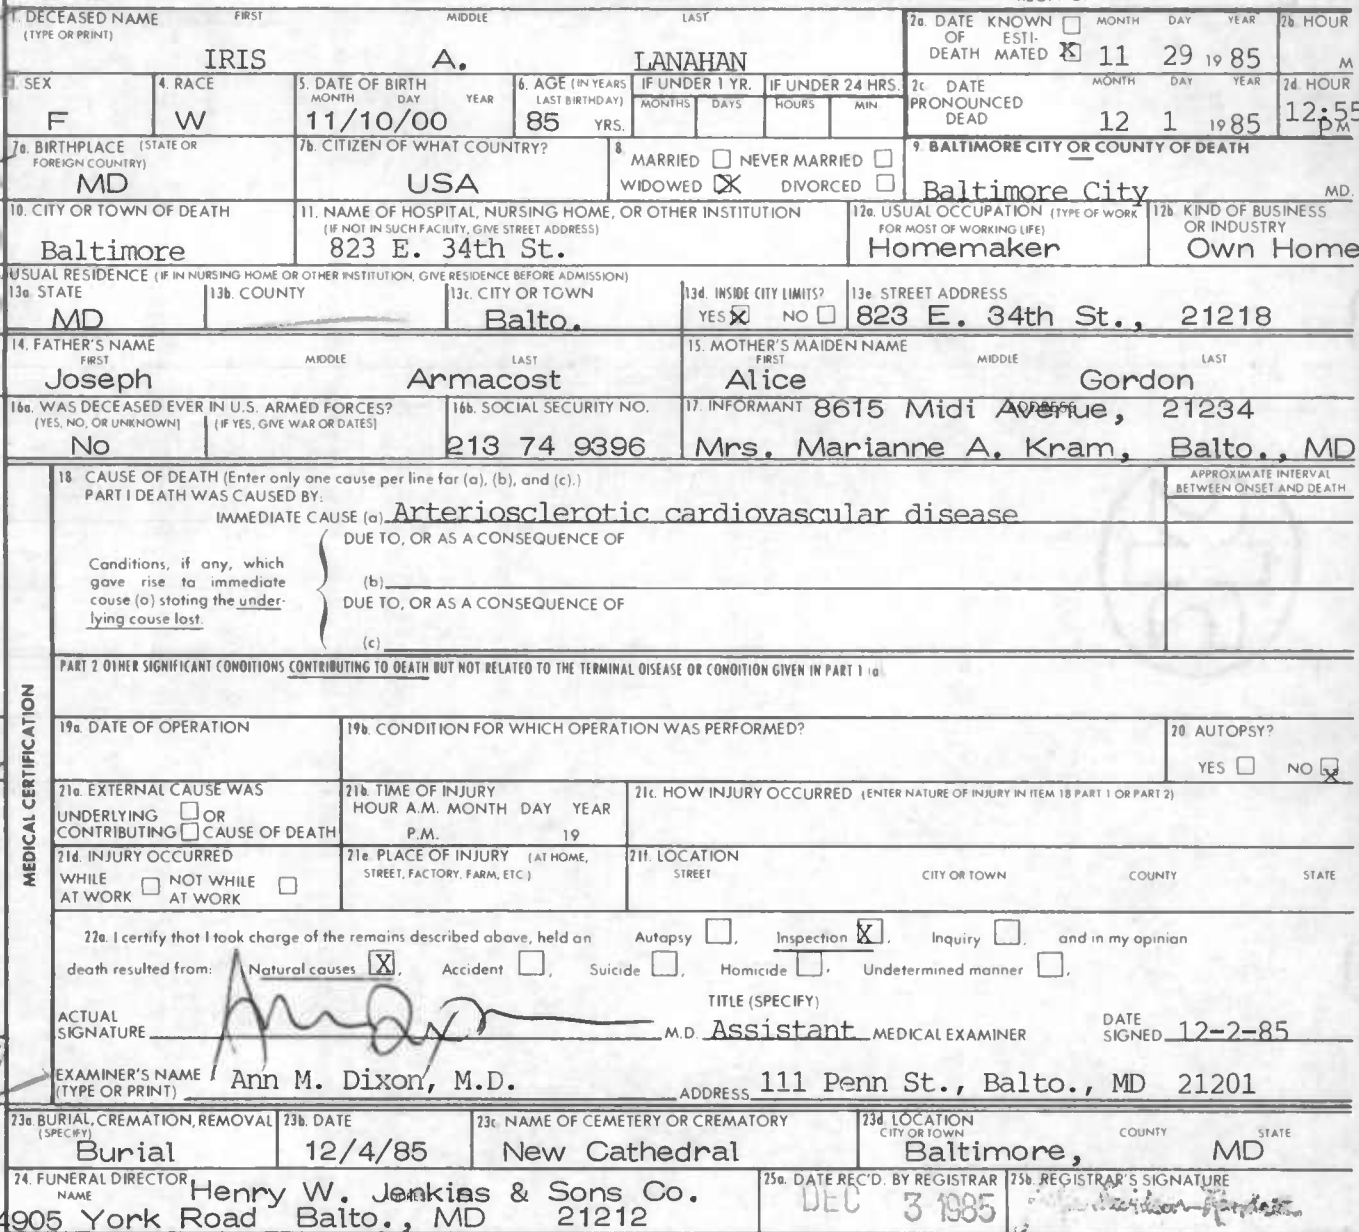 1. DECEASED NAME FIRST MIDDLE LAST
(TYPE OR PRINT)
IRIS A. LANAHAN
2a. DATE KNOWN ☐ MONTH DAY YEAR
OF ESTI-
DEATH MATED ☒ 11 29 1985
2b. HOUR
M
3. SEX
F
4. RACE
W
5. DATE OF BIRTH
MONTH DAY YEAR
11/10/00
6. AGE (IN YEARS
LAST BIRTHDAY)
85 YRS.
IF UNDER 1 YR.
MONTHS DAYS
IF UNDER 24 HRS.
HOURS MIN
2c DATE MONTH DAY YEAR
PRONOUNCED
DEAD 12 1 1985
2d. HOUR
12:55
PM
7a. BIRTHPLACE (STATE OR
FOREIGN COUNTRY)
MD
7b. CITIZEN OF WHAT COUNTRY?
USA
8
MARRIED ☐ NEVER MARRIED ☐
WIDOWED ☒ DIVORCED ☐
9. BALTIMORE CITY OR COUNTY OF DEATH
Baltimore City MD.
10. CITY OR TOWN OF DEATH
Baltimore
11. NAME OF HOSPITAL, NURSING HOME, OR OTHER INSTITUTION
(IF NOT IN SUCH FACILITY, GIVE STREET ADDRESS)
823 E. 34th St.
12a. USUAL OCCUPATION (TYPE OF WORK
FOR MOST OF WORKING LIFE)
Homemaker
12b. KIND OF BUSINESS
OR INDUSTRY
Own Home
USUAL RESIDENCE (IF IN NURSING HOME OR OTHER INSTITUTION, GIVE RESIDENCE BEFORE ADMISSION)
13a STATE
MD
13b. COUNTY
13c. CITY OR TOWN
Balto.
13d. INSIDE CITY LIMITS?
YES ☒ NO ☐
13e STREET ADDRESS
823 E. 34th St., 21218
14. FATHER'S NAME
FIRST MIDDLE LAST
Joseph Armacost
15. MOTHER'S MAIDEN NAME
FIRST MIDDLE LAST
Alice Gordon
16a. WAS DECEASED EVER IN U.S. ARMED FORCES?
(YES, NO, OR UNKNOWN) (IF YES, GIVE WAR OR DATES)
No
16b. SOCIAL SECURITY NO.
213 74 9396
17. INFORMANT ADDRESS
8615 Midi Avenue, 21234
Mrs. Marianne A. Kram, Balto., MD
MEDICAL CERTIFICATION
18 CAUSE OF DEATH (Enter only one cause per line for (a), (b), and (c).)
PART I DEATH WAS CAUSED BY:
APPROXIMATE INTERVAL
BETWEEN ONSET AND DEATH
IMMEDIATE CAUSE (a) Arteriosclerotic cardiovascular disease
DUE TO, OR AS A CONSEQUENCE OF
Conditions, if any, which
gave rise to immediate
cause (a) stating the under-
lying cause last.
(b)
DUE TO, OR AS A CONSEQUENCE OF
(c)
PART 2 OTHER SIGNIFICANT CONDITIONS CONTRIBUTING TO DEATH BUT NOT RELATED TO THE TERMINAL DISEASE OR CONDITION GIVEN IN PART 1 (a)
19a. DATE OF OPERATION
19b. CONDITION FOR WHICH OPERATION WAS PERFORMED?
20 AUTOPSY?
YES ☐ NO ☒
21a. EXTERNAL CAUSE WAS
UNDERLYING ☐ OR
CONTRIBUTING ☐ CAUSE OF DEATH
21b. TIME OF INJURY
HOUR A.M. MONTH DAY YEAR
P.M. 19
21c. HOW INJURY OCCURRED (ENTER NATURE OF INJURY IN ITEM 18 PART 1 OR PART 2)
21d. INJURY OCCURRED
WHILE ☐ NOT WHILE ☐
AT WORK AT WORK
21e PLACE OF INJURY (AT HOME,
STREET, FACTORY, FARM, ETC.)
21f. LOCATION
STREET CITY OR TOWN COUNTY STATE
22a. I certify that I took charge of the remains described above, held an Autopsy ☐, Inspection ☒, Inquiry ☐, and in my opinion
death resulted from: Natural causes ☒, Accident ☐, Suicide ☐, Homicide ☐, Undetermined manner ☐.
ACTUAL
SIGNATURE M.D.
TITLE (SPECIFY)
Assistant MEDICAL EXAMINER
DATE
SIGNED 12-2-85
EXAMINER'S NAME
(TYPE OR PRINT) Ann M. Dixon, M.D.
ADDRESS 111 Penn St., Balto., MD 21201
23a. BURIAL, CREMATION, REMOVAL
(SPECIFY)
Burial
23b. DATE
12/4/85
23c NAME OF CEMETERY OR CREMATORY
New Cathedral
23d. LOCATION
CITY OR TOWN COUNTY STATE
Baltimore, MD
24. FUNERAL DIRECTOR
NAME
Henry W. Jenkins & Sons Co.
4905 York Road Balto., MD 21212
25a. DATE REC'D. BY REGISTRAR
DEC 3 1985
25b. REGISTRAR'S SIGNATURE